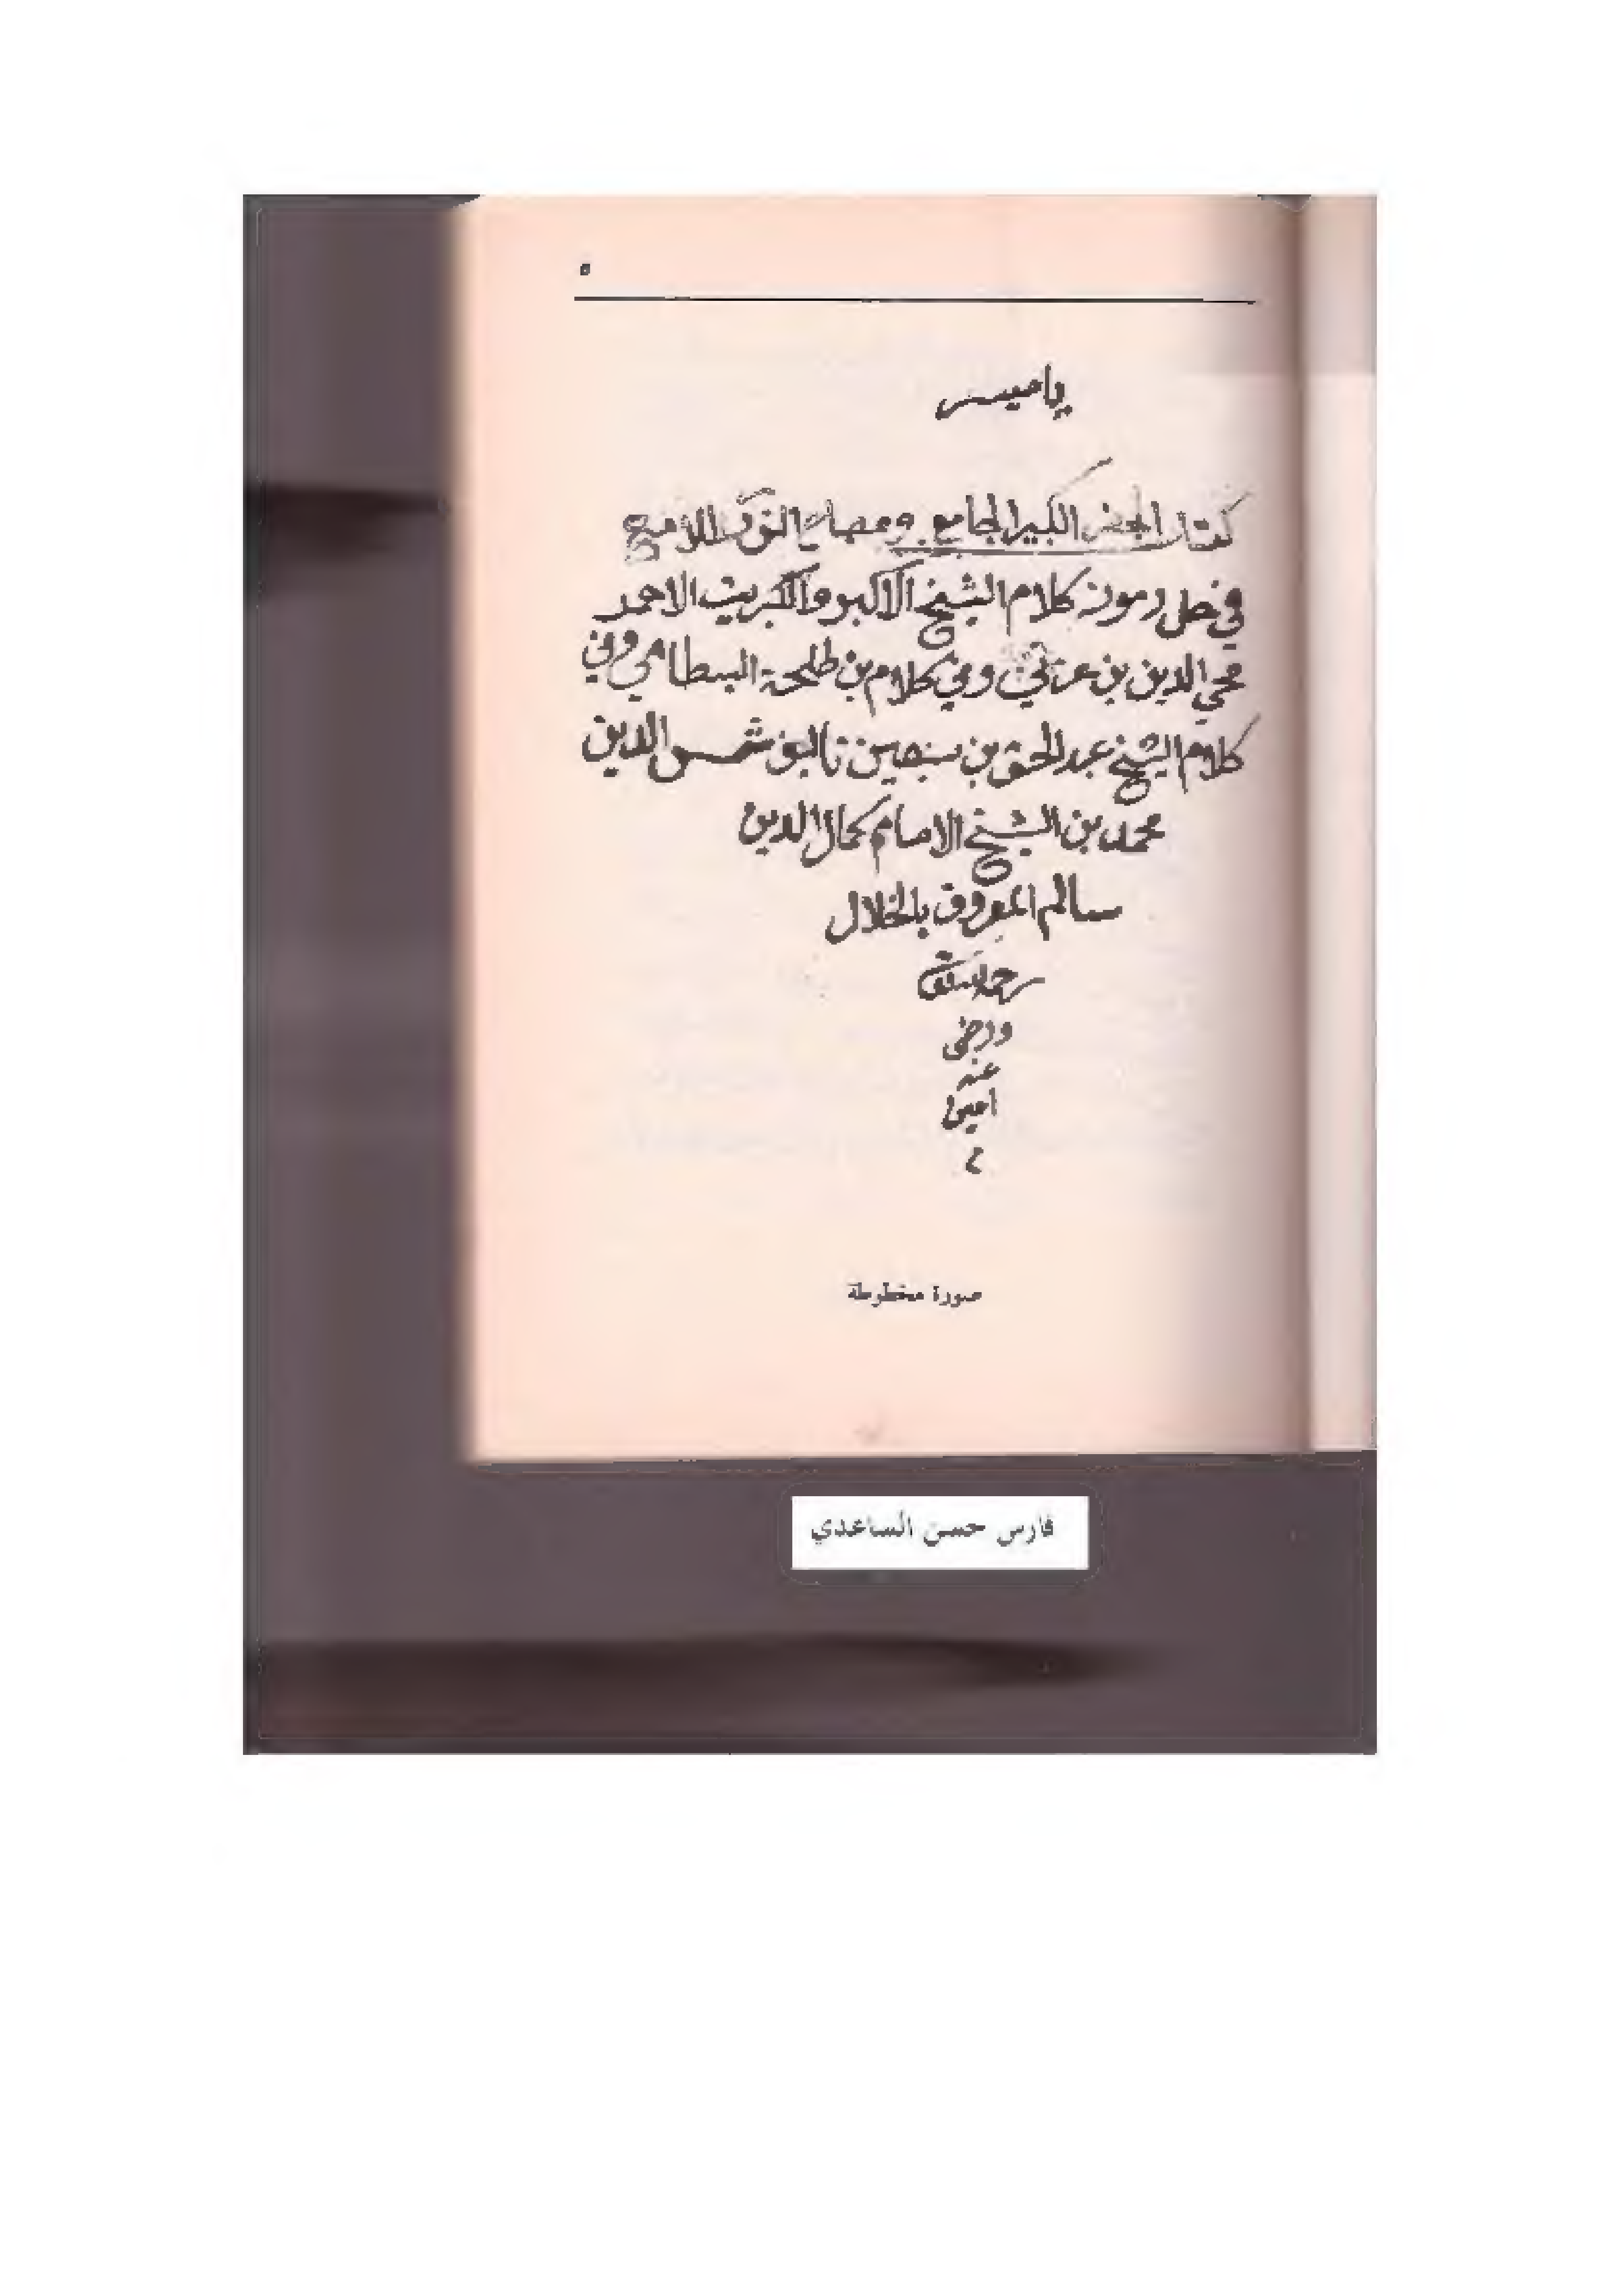 ٥
يا ميسر
كتاب الجفر الكبير الجامع ومصباح النور اللامع
في حل رموز كلام الشيخ الاكبر والكبريت الاحمر
محي الدين بن عربي وفي كلام بن طلحة البسطامي وفي
كلام الشيخ عبد الحق بن سبعين تاليف شمس الدين
محمد بن الشيخ الامام كمال الدين
سالم المعروف بالخلال
رحمه الله تعالى
ورضى
عنه
امين
م
صورة مخطوطة
فارس حسن الساعدي